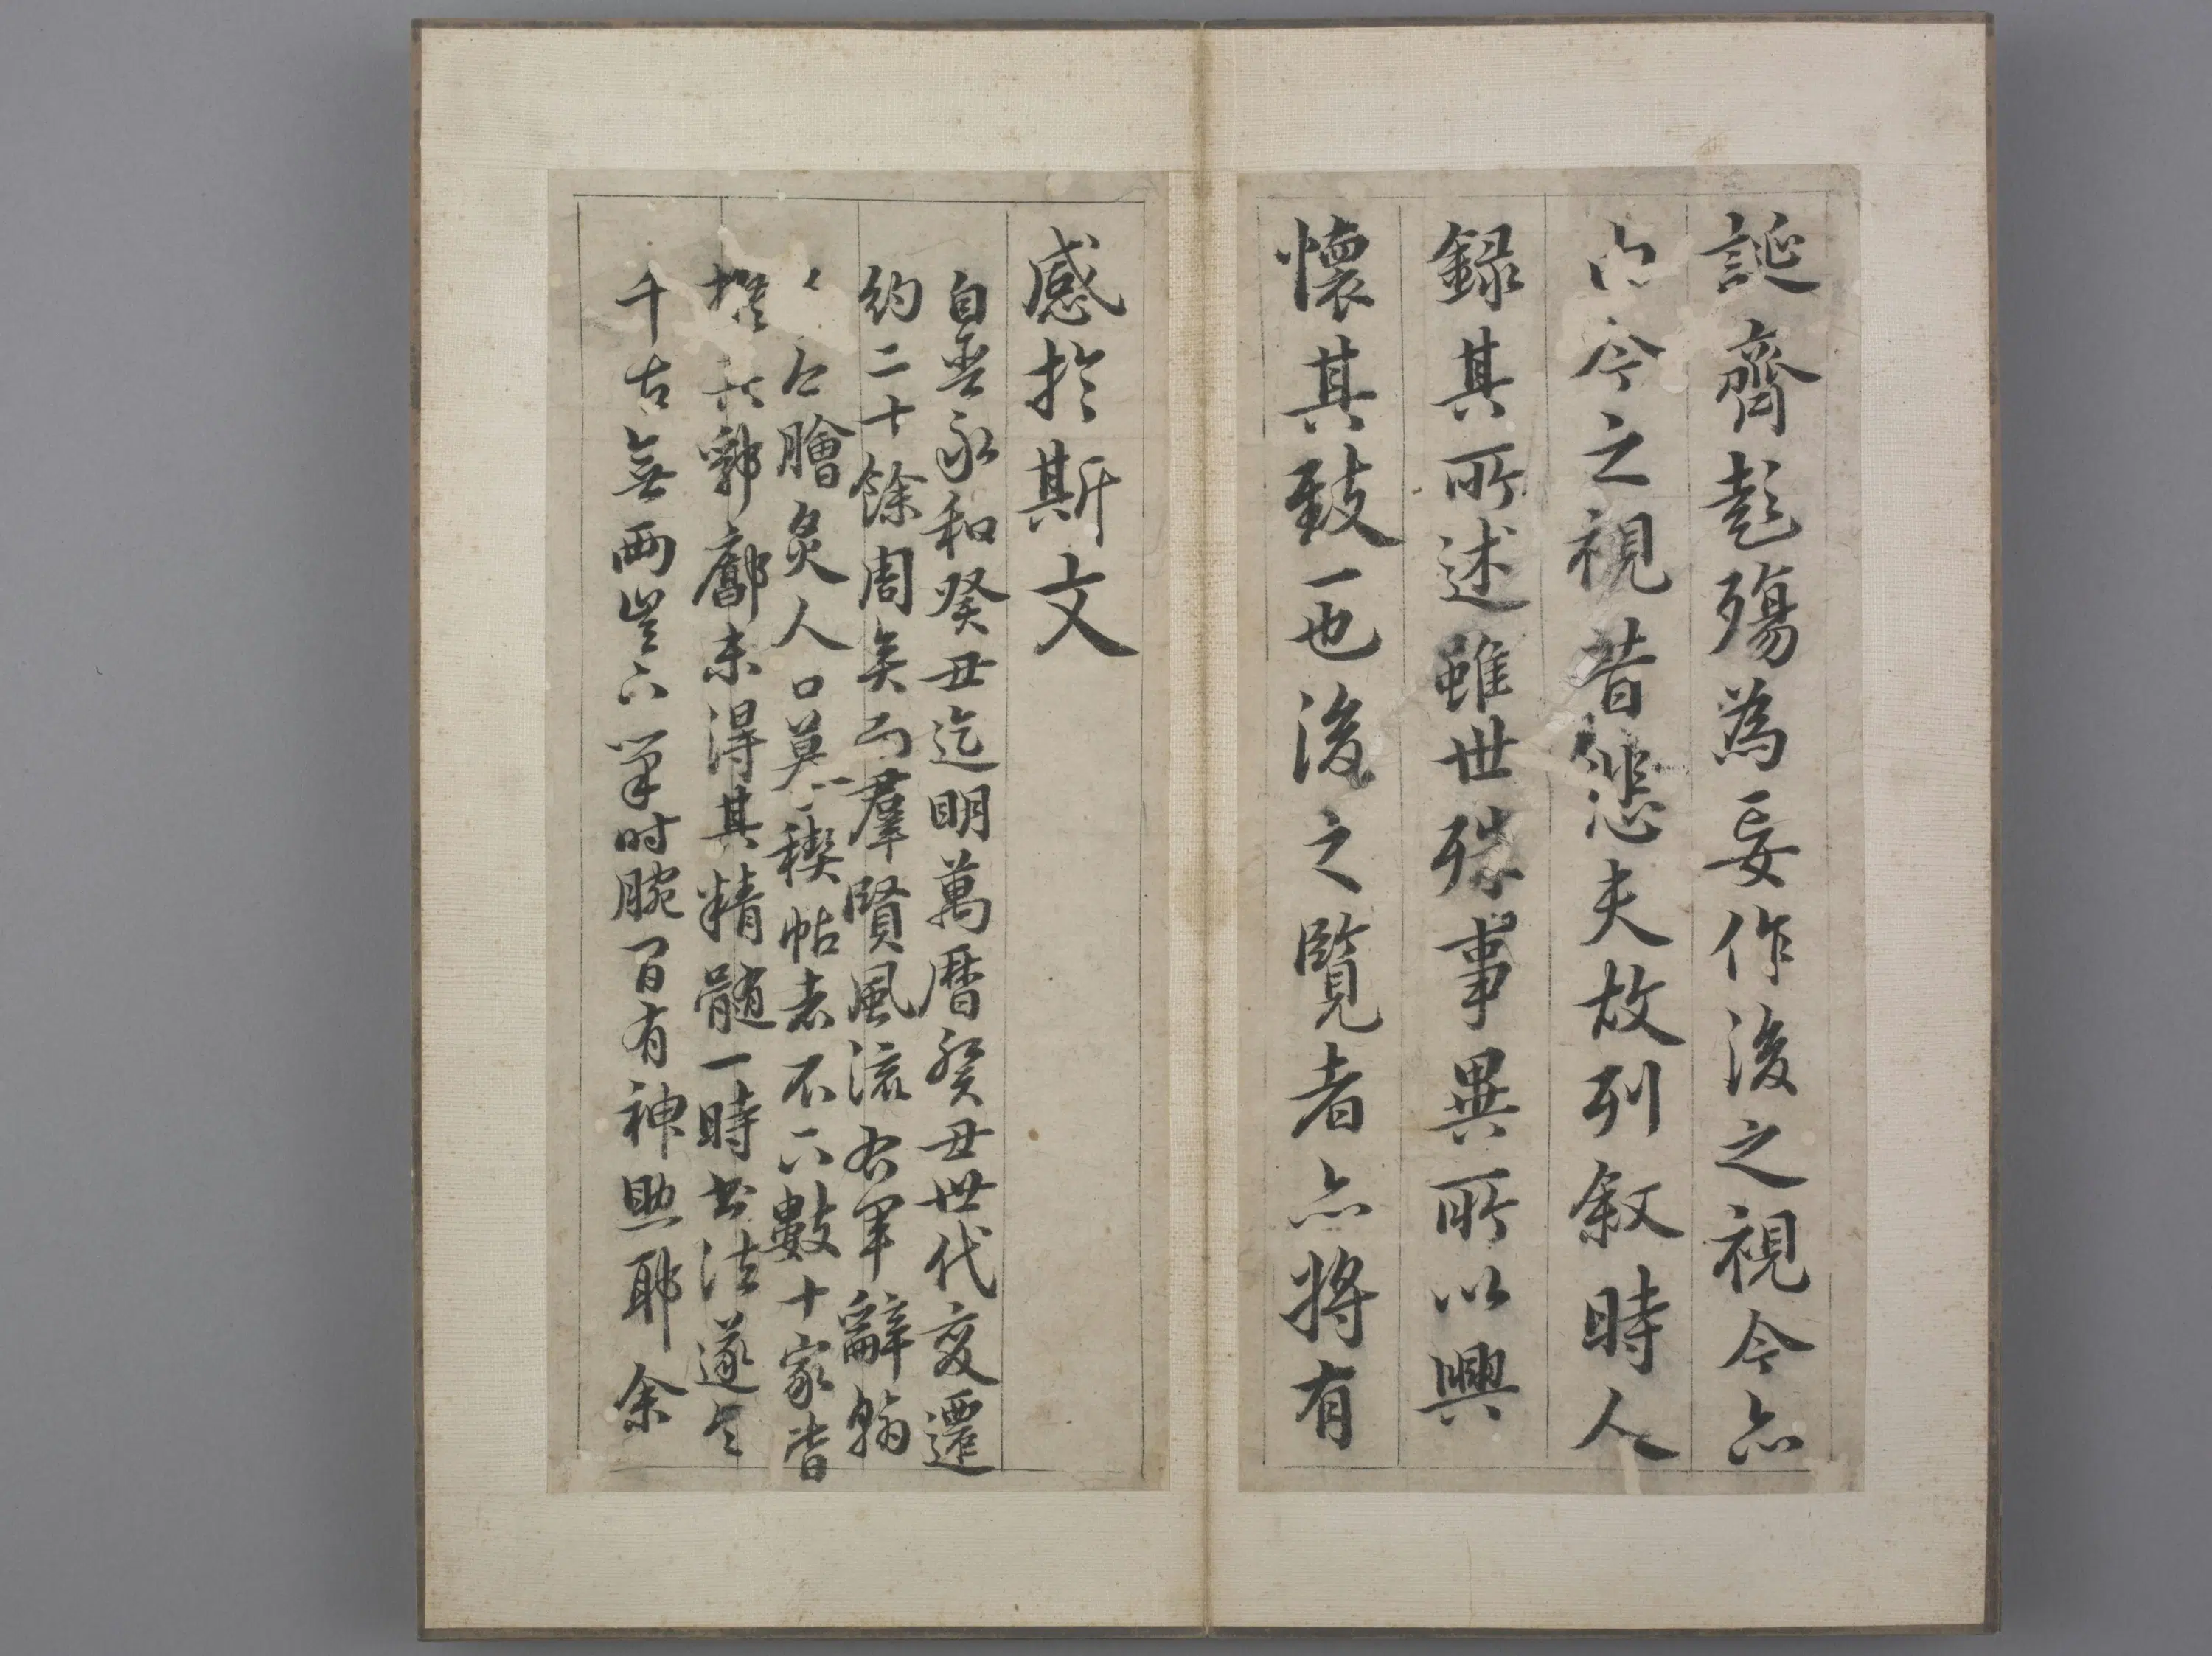 誕齊彭殤為妄作後之視今亦
今之視昔悲夫故列敘時人
録其所述雖世殊事異所以興
懷其致一也後之覽者亦將有
感於斯文
自晉永和癸丑迄明萬曆癸丑世代変遷
約二十餘周矣而羣賢風流右軍辭翰
膾炙人口摹禊帖者不下數十家皆
郛廓未得其精髓一時書法遂令
千古無兩豈下筆时腕間有神助耶余